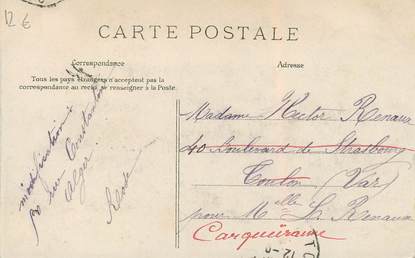 12 €
CARTE POSTALE
Correspondance
Adresse
Tous les pays étrangers n'acceptent pas la
correspondance au recto se renseigner à la Poste.
rue Constantine
Alger
Madame Hector Renaux
40 Boulevard de Strasbourg
Toulon (Var)
pour Melle Renaux
Carqueiranne